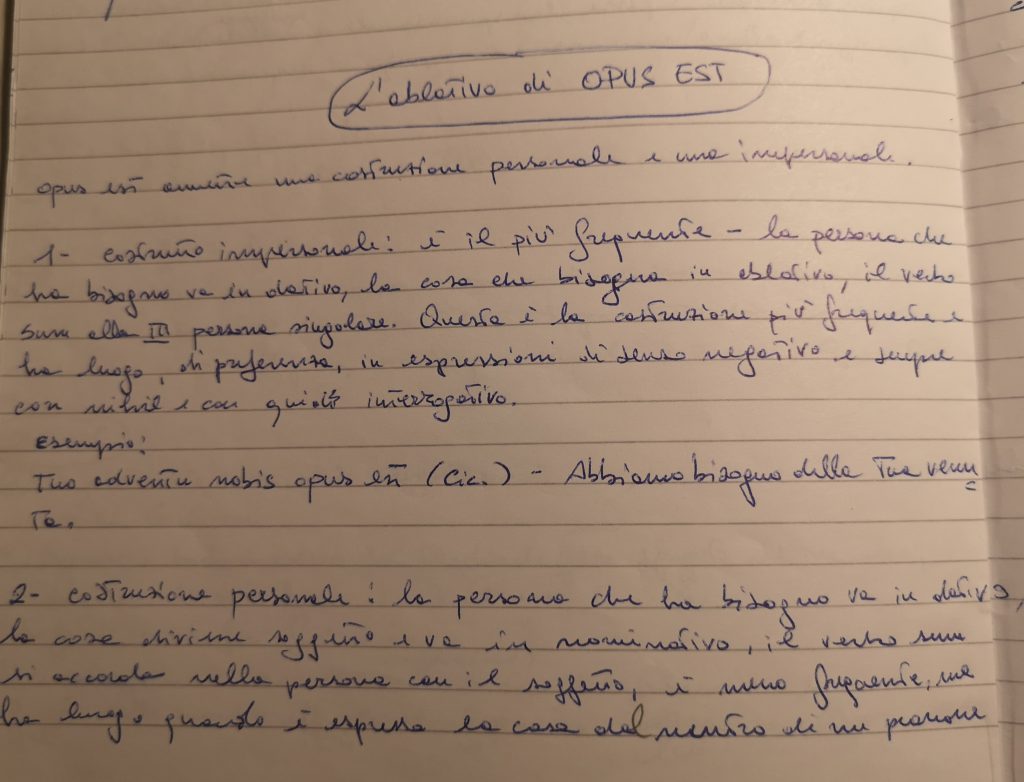 L'ablativo di OPUS EST
opus est ammette una costruzione personale e una impersonale.
1- costrutto impersonale: è il più frequente - la persona che
ha bisogno va in dativo, la cosa che bisogna in ablativo, il verbo
sum alla III persona singolare. Questa è la costruzione più frequente e
ha luogo, di preferenza, in espressioni di senso negativo e sempre
con nihil e con quid interrogativo.
Esempio:
Tuo adventu nobis opus est (Cic.) - Abbiamo bisogno della tua venu
ta.
2- costruzione personale: la persona che ha bisogno va in dativo,
la cosa diviene soggetto e va in nominativo, il verbo sum
si accorda nella persona con il soggetto, è meno frequente, ma
ha luogo quando è espressa la cosa dal neutro di un pronome